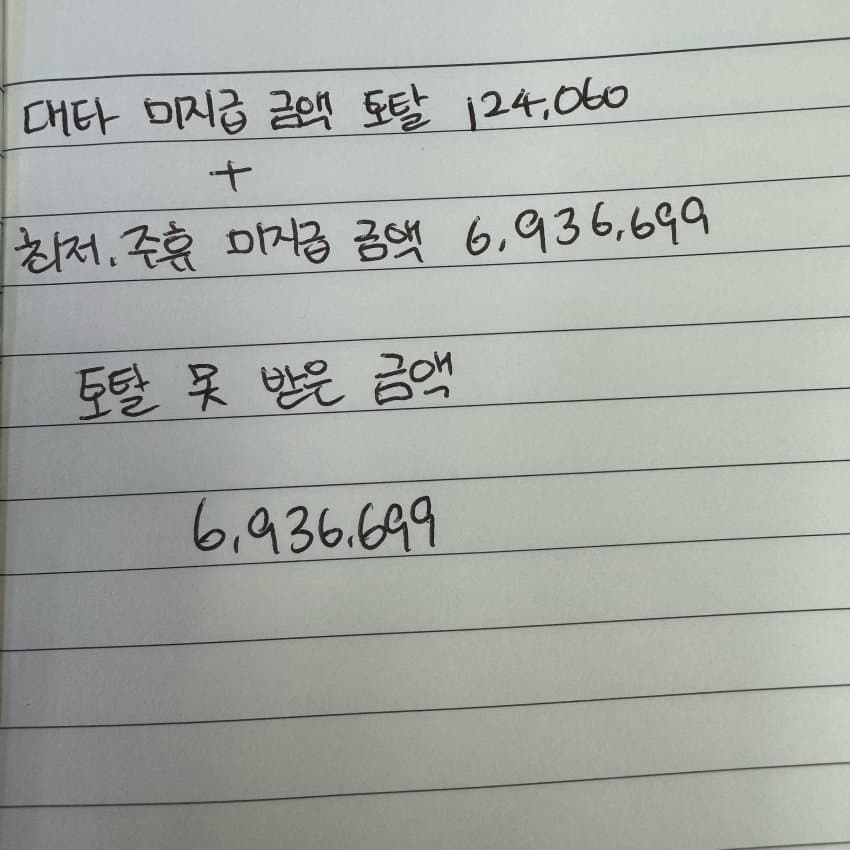 대타 미지급 금액 토탈 124,060
+
최저.주휴 미지급 금액 6,936,699
토탈 못 받은 금액
6,936,699